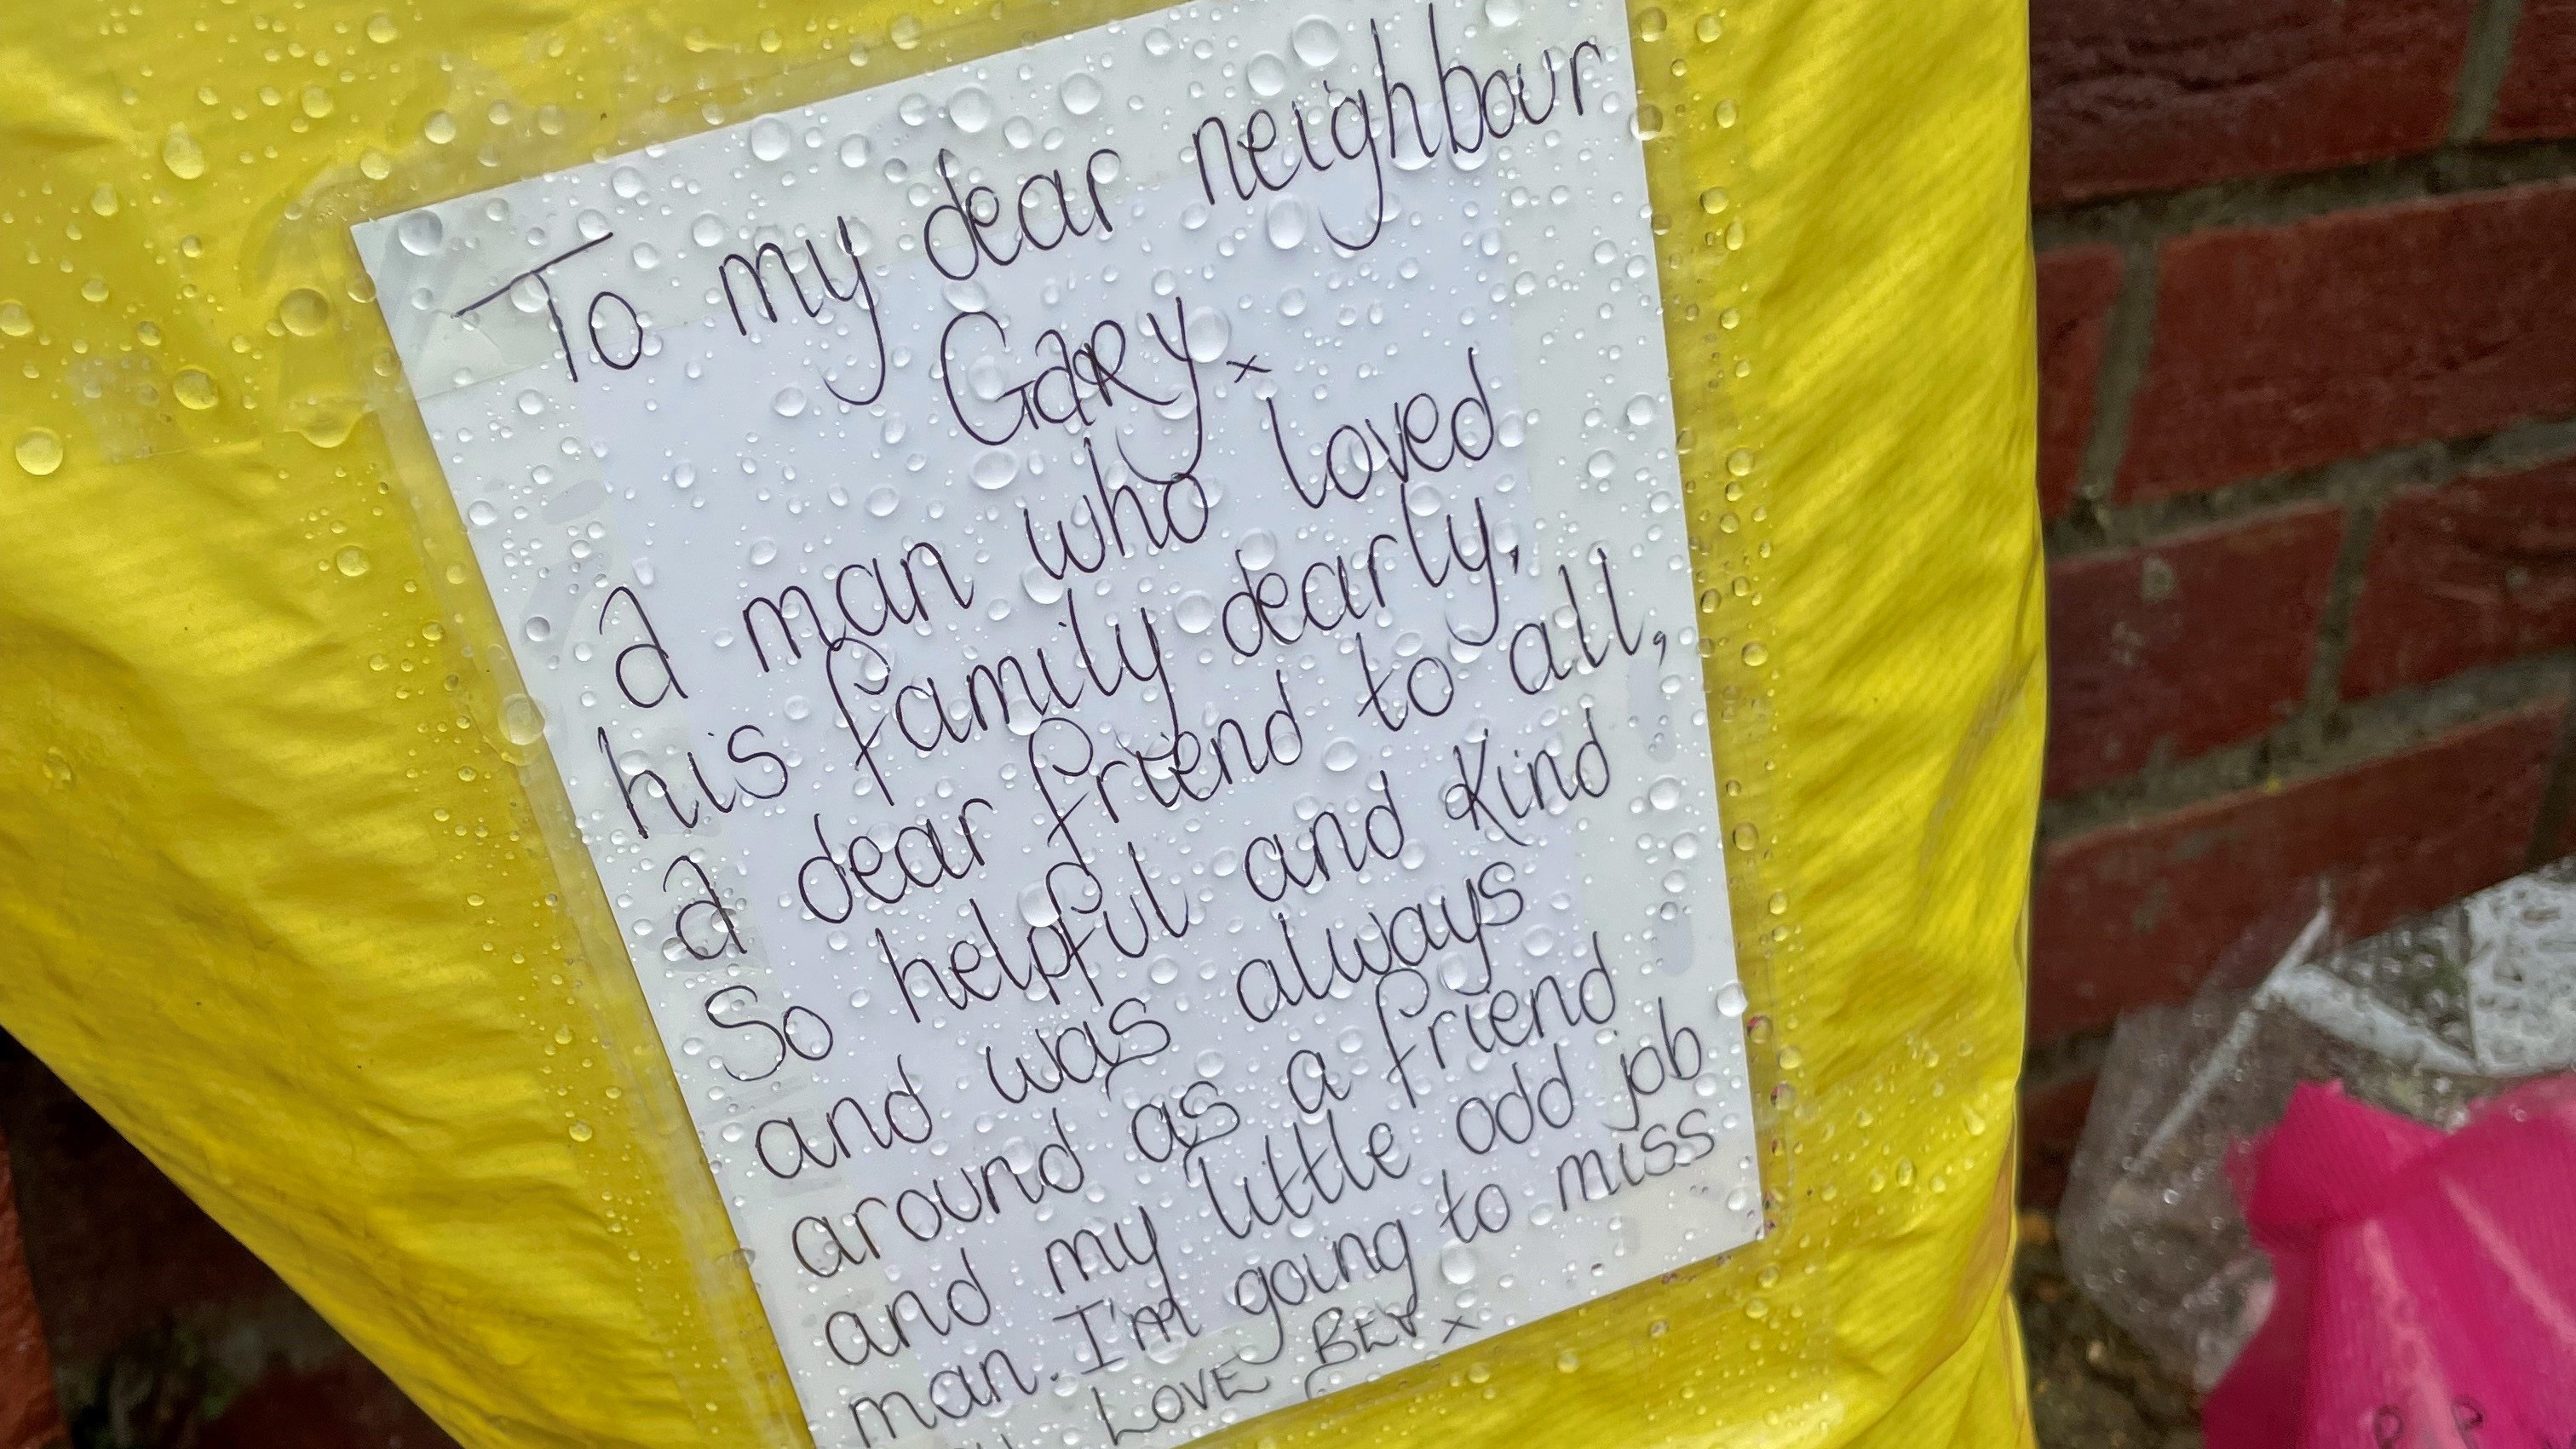 To my dear neighbour
Gary x
a man who loved
his family dearly,
a dear friend to all,
So helpful and kind
and was always
around as a friend
and my little odd job
man. I'm going to miss
LOVE BEV x
R.I.P